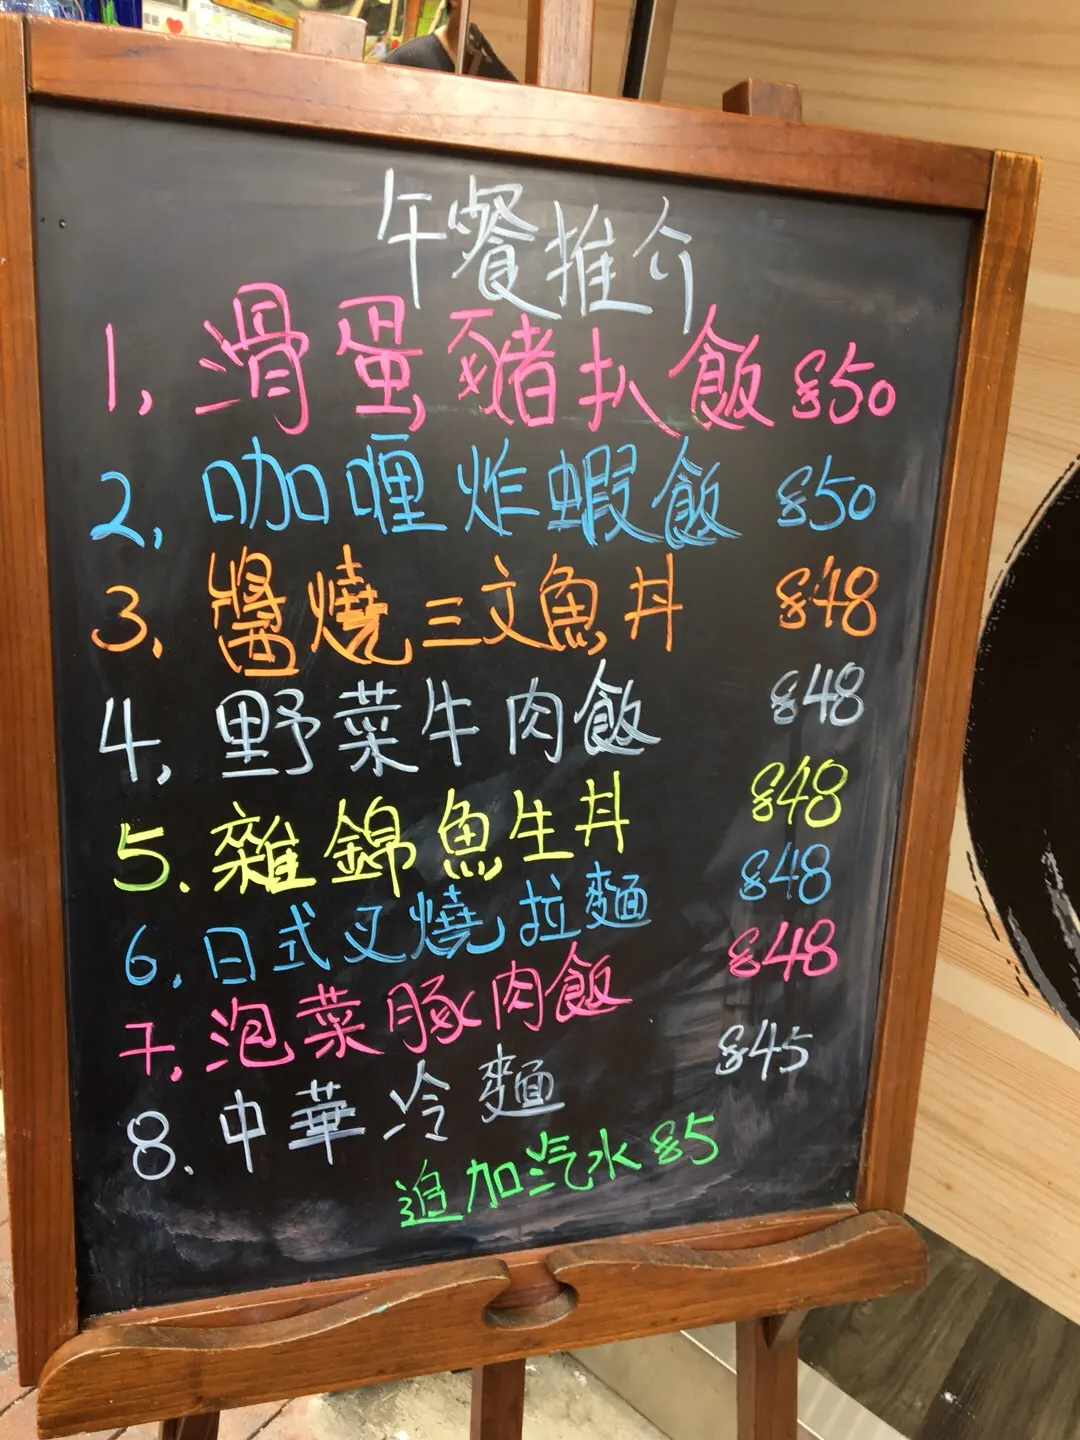 午餐推介
1, 滑蛋豬扒飯 $50
2, 咖喱炸蝦飯 $50
3, 醬燒三文魚丼 $48
4, 野菜牛肉飯 $48
5. 雜錦魚生丼 $48
6. 日式叉燒拉麵 $48
7, 泡菜豚肉飯 $48
8. 中華冷麵 $45
追加汽水 $5